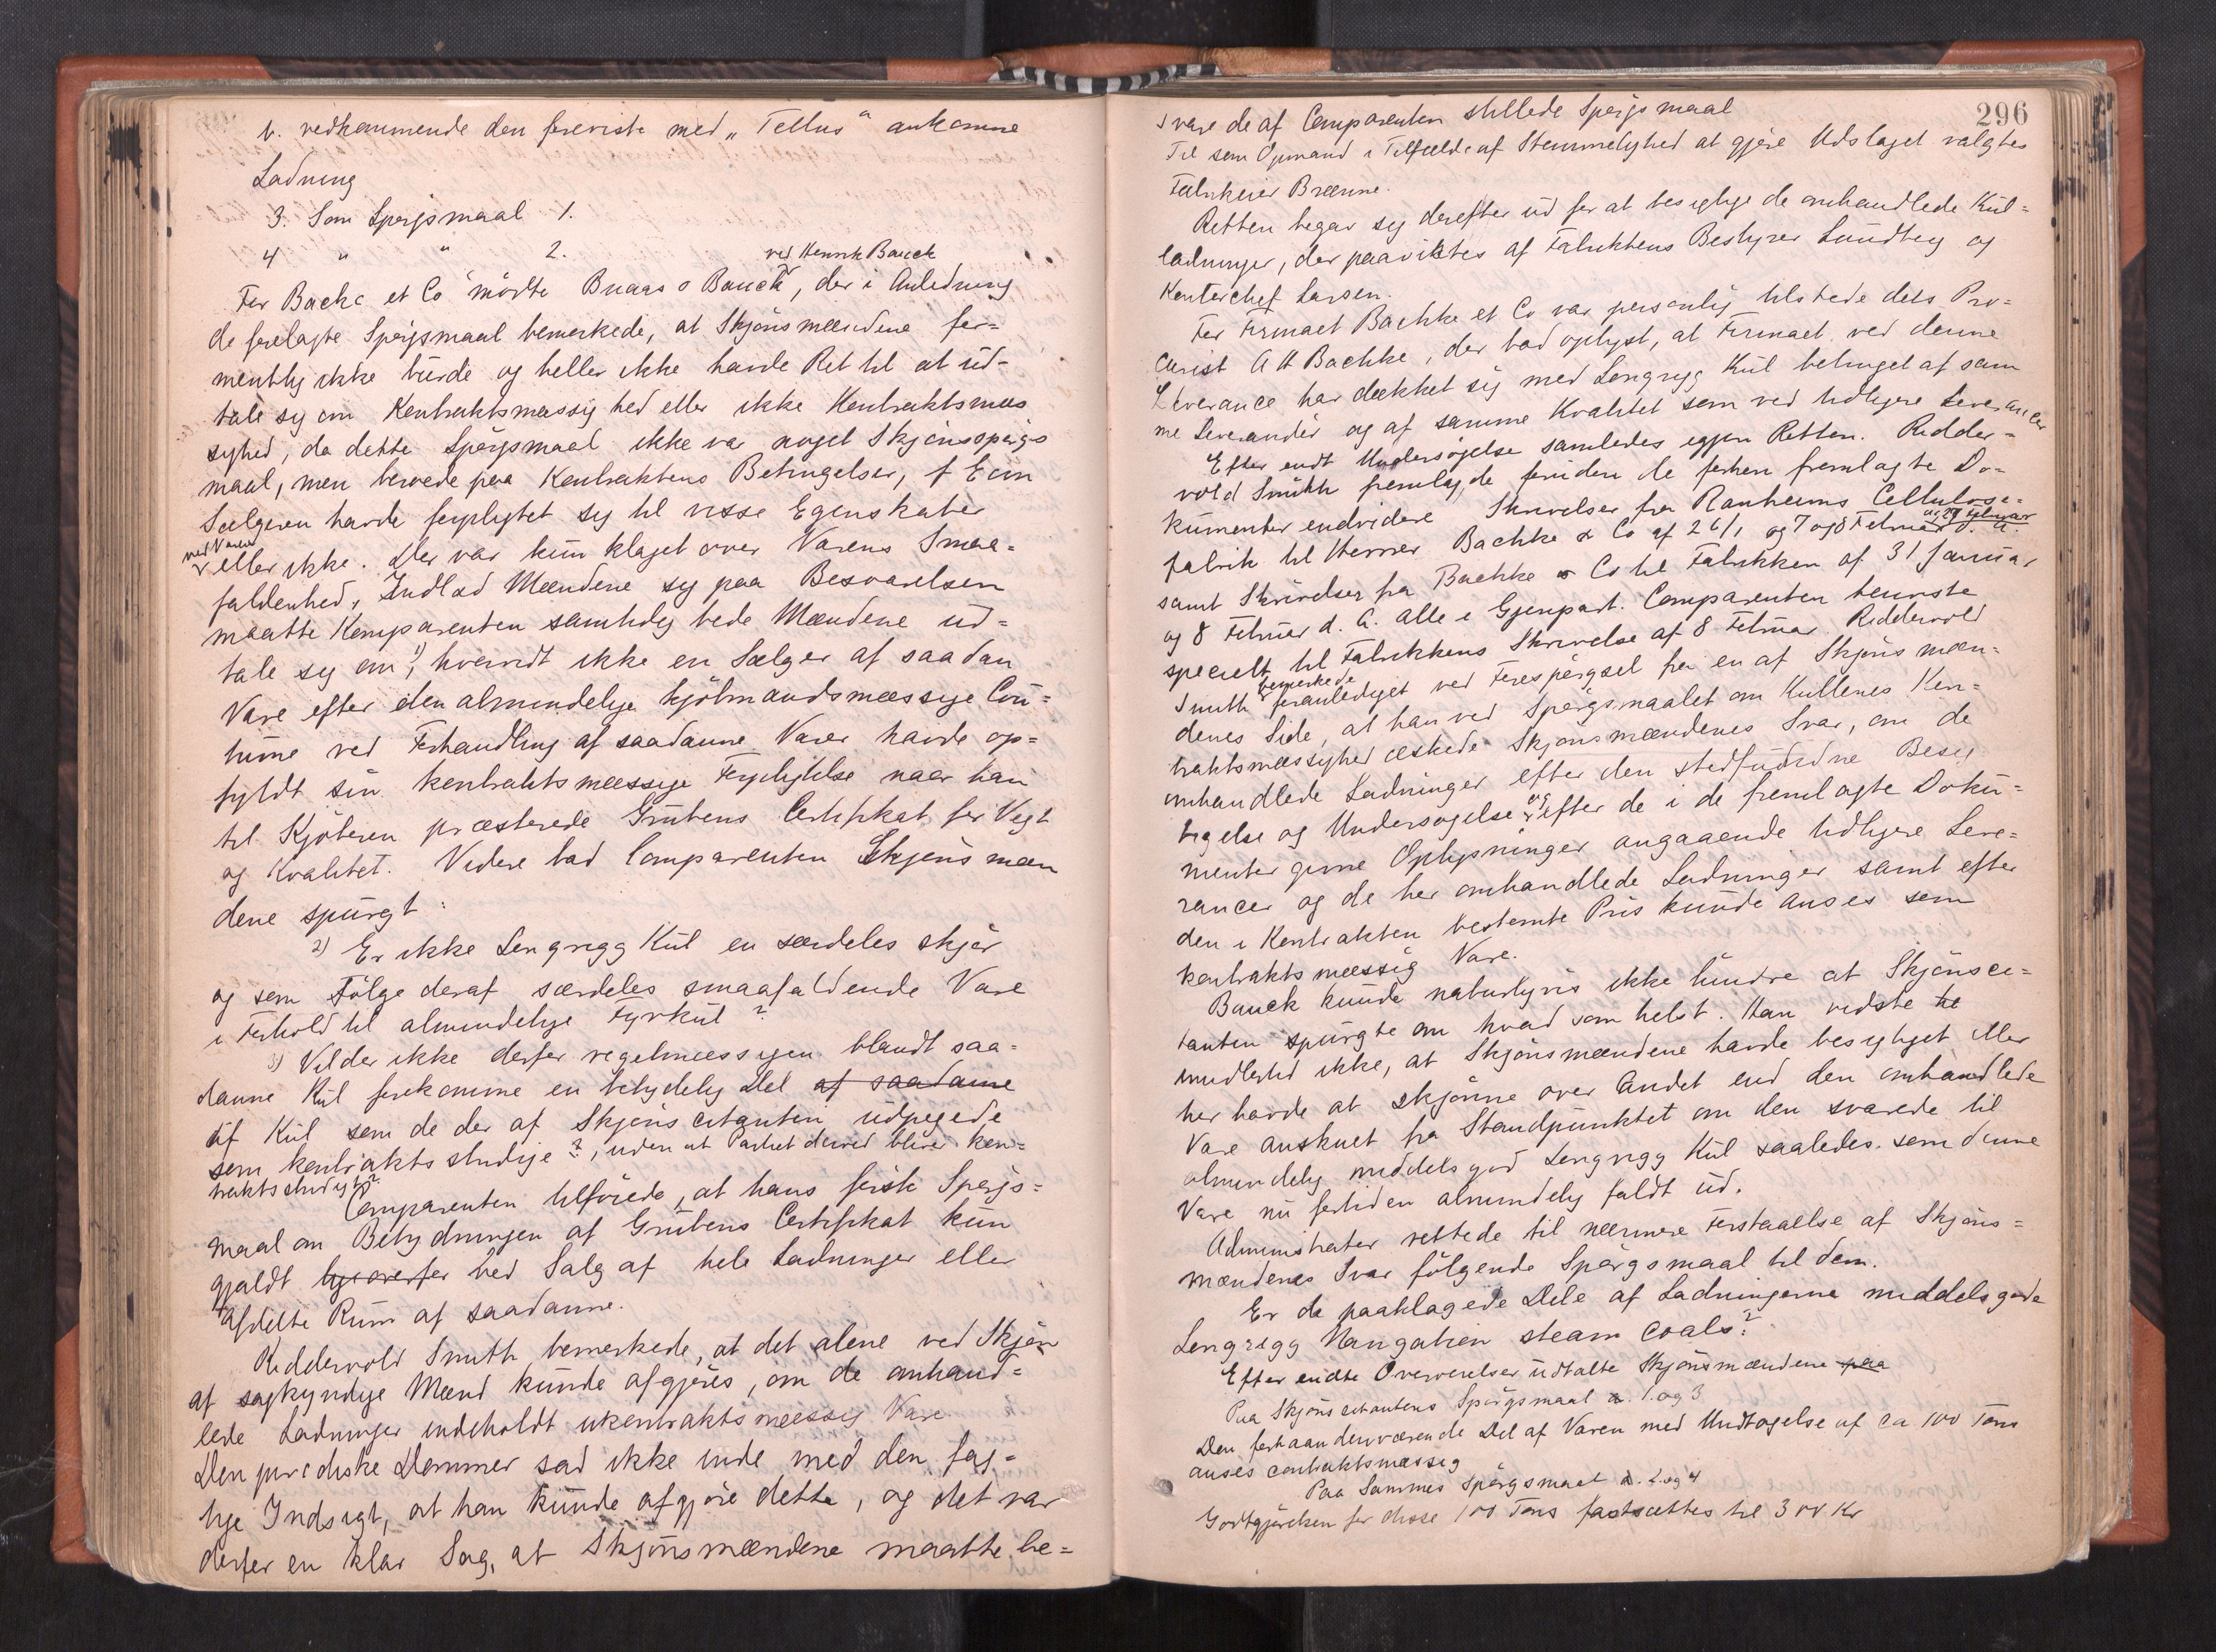 b. vedkommende den foreviste med „Tellus“ ankomne
Ladning
3. Som Spørgsmaal 1.
4 " " 2.
ved Henrik Bauck
For Bachke et Co mödte Buaas & Bauck, der i Anledning
de forelagte Spørgsmaal bemerkede, at Skjönsmændene for=
mentlig ikke burde og heller ikke havde Ret til at ud-
tale sig om Kontraktsmæssighed eller ikke Kontraktsmæs
sighed, da dette Spørgsmaal ikke var noget Skjönsspørgs
maal, men beroede paa Kontraktens Betingelser, f Ex om
Sælgeren havde forpligtet sig til visse Egenskaber
ved Varen
eller ikke. Der var kun klaget over Varens Smaa=
faldenhed. Indlod Mændene sig paa Besvarelsen
maatte Komparenten samtidig bede Mændene ud=
tale sig om 1) hvorvidt ikke en Sælger af saadan
Vare efter den almindelige kjöbmandsmæssige Cou=
tume ved Forhandling af saadanne Varer havde op=
fyldt sin kontraktsmæssige Forpligtelse naar han
til Kjöberen præsterede Grubens Certifikat for Vegt
og Kvalitet. Videre bad Comparenten Skjönsmæn
dene spurgt:
2) Er ikke Longrigg Kul en særdeles skjör
og som Fölge deraf særdeles smaafaldende Vare
i Forhold til almindelige Fyrkul?
3) Vil der ikke derfor regelmæssigen blandt saa=
danne Kul forekomme en betydelig Del af saadanne
af Kul som de der af Skjönscitanten udpegede
som kontraktsstridige?, uden at Partiet derved bliver kon=
traktsstridigt?
Comparenten tilförede, at hans förste Spørgs=
maal om Betydningen af Grubens Certifikat kun
gjaldt ligeoverfor ved Salg af hele Ladninger eller
afdelte Rum af saadanne.
Riddervold Smith bemerkede, at det alene ved Skjön
af sagkyndige Mænd kunde afgjöres, om de omhand=
lede Ladninger indeholdt ukontraktsmæssig Vare.
Den juridiske Dommer sad ikke inde med den fag=
lige Indsigt, at han kunde afgjöre dette, og det var
derfor en klar Sag, at Skjönsmændene maatte be=
296
svare de af Comparenten stillede Spørgsmaal
Til som Opmand i Tilfælde af Stemmelighed at gjöre Udslaget valgtes
Fabrikeier Brænne.
Retten begav sig derefter ud for at besigtige de omhandlede Kul=
ladninger, der paavistes af Fabrikens Bestyrer Lundbeg og
Kontorchef Larsen.
For Firmaet Bachke et Co var personlig tilstede dets Pro=
curist A H Bachke, der bad oplyst, at Firmaet ved denne
Leverance har dækket sig med Longrigg Kul betinget af sam
me Leverandör og af samme Kvalitet som ved tidligere Leverancer
Efter endt Undersögelse samledes igjen Retten. Ridder=
vold Smith fremlagde foruden de forhen fremlagte Do=
kumenter endvidere Skrivelser fra Ranheims Cellulose=
og 29 Februar
fabrik til Herrer Bachke & Co af 26/1 og 7 og 8 Februar d. A.
samt Skrivelser fra Bachke & Co til Fabrikken af 31 Januar
og 8 Februar d. A. alle i Gjenpart. Comparenten henviste
specielt til Fabrikkens Skrivelse af 8 Februar. Riddervold
bemerkede
Smith foranlediget ved Forespörgsel fra en af Skjönsmæn=
denes Side, at han ved Spørgsmaalet om Kullenes Kon=
traktsmæssighed æskede Skjönsmændenes Svar, om de
omhandlede Ladninger efter den stedfundne Besig
tigelse og Undersögelse og efter de i de fremlagte Doku=
menter givne Oplysninger angaaende tidligere Leve=
rancer og de her omhandlede Ladninger samt efter
den i Kontrakten bestemte Pris kunde anses som
kontraktsmæssig Vare.
Bauck kunde naturligvis ikke hindre at Skjönsci=
tanten spurgte om hvad som helst. Han vidste
imidlertid ikke, at Skjönsmændene havde besigtiget eller
her havde at skjönne over Andet end den omhandlede
Vare anskuet fra Standpunktet om den svarede til
almindelig middels god Longrigg Kul saaledes som denne
Vare nu fortiden almindelig faldt ud.
Administrator rettede til nærmere Forstaaelse af Skjöns=
mændenes Svar fölgende Spørgsmaal til dem.
Er de paaklagede Dele af Ladningerne middelsgode
Longrigg Navigation steam coals?
Efter endte Overveielser udtalte Skjönsmændene paa
Paa Skjönscitantens Spörgsmaal 1. og 3
Den forhaandenværende Del af Varen med Undtagelse af ca 100 Tons
anses contraktsmæssig
Paa Sammes Spørgsmaal 2. og 4
Godtgjörelsen for disse 100 Tons fastsættes til 300 Kr